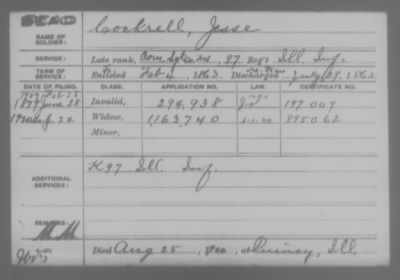 DEAD
NAME OF SOLDIER: Cockrell, Jesse
SERVICE: Late rank, Com. Sgt. 97 Reg't Ill. Inf.
TERM OF SERVICE: Enlisted Feb 4, 1863 Discharged July 29, 1863
DATE OF FILING. CLASS. APPLICATION NO. LAW. CERTIFICATE NO.
1879 June 28 Invalid, 294,938 197009
Sep. 22 Widow, 1,163,740 895062
Minor,
ADDITIONAL SERVICES: K 97 Ill. Inf.
REMARKS:
Died Aug 25, at Quincy, Ill.